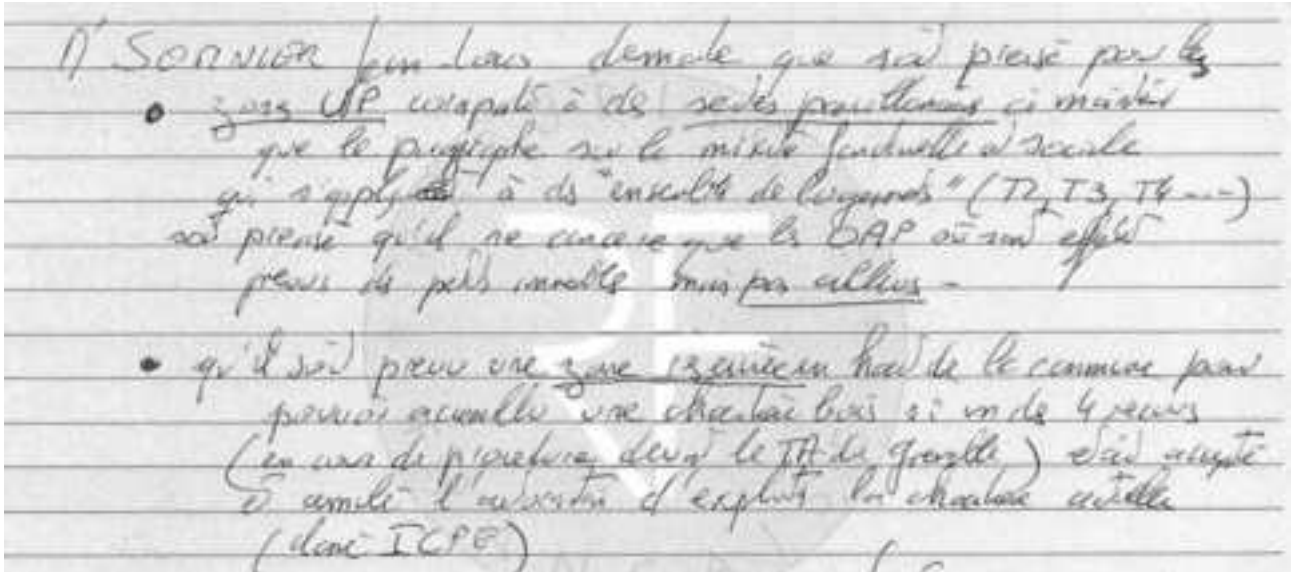 Mr SORNIER Jean-Louis demande que soit précisé pour les
• zones UP correspondant à des secteurs pavillonnaires si maintien
que le paragraphe sur la mixité fonctionnelle et sociale
qui s'applique à des "ensembles de logements" (T2, T3, T4 ...)
soit précisé qu'il ne concerne que les OAP où sont effet
prévus des petits immeubles mais pas ailleurs -
• qu'il soit prévu une zone en haut de la commune pour
pouvoir accueillir une chaufferie bois si un des 4 recours
(en cours de procédure devant le TA de Grenoble) était accepté
et annulait l'autorisation d'exploiter la chaufferie actuelle
(ICPE)